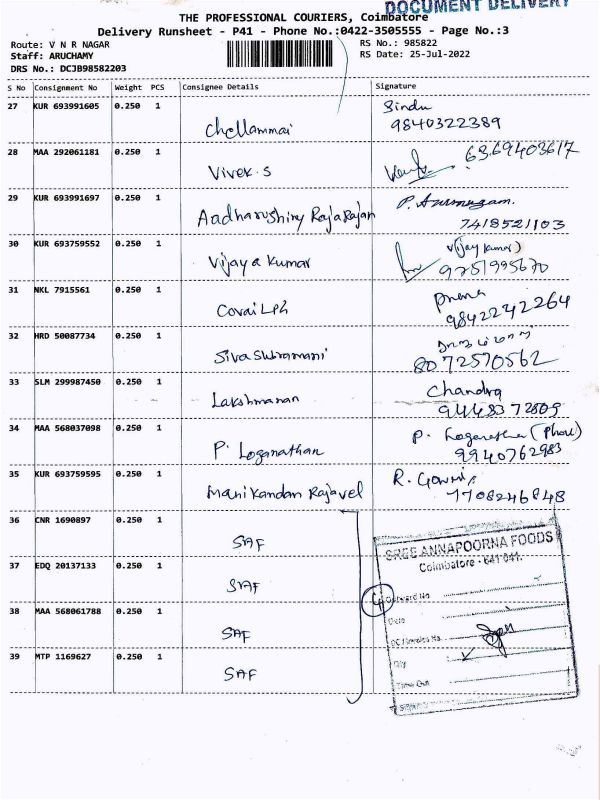 DOCUMENT DELIVERY
THE PROFESSIONAL COURIERS, Coimbatore
Delivery Runsheet - P41 - Phone No.:0422-3505555 - Page No.:3
Route: V N R NAGAR RS No.: 985822
Staff: ARUCHAMY RS Date: 25-Jul-2022
DRS No.: DCJB98582203
S No Consignment No Weight PCS Consignee Details Signature
27 KUR 693991605 0.250 1 Chellammai Sindu
9840322389
28 MAA 292061181 0.250 1 Vivek.S 6369403617
29 KUR 693991697 0.250 1 Aadharushiny RajaRajan P. Arumugam.
7418521103
30 KUR 693759552 0.250 1 Vijaya Kumar (Vijay Kumar)
9751995670
31 NKL 7915561 0.250 1 Covai LPh
9842242264
32 HRD 50087734 0.250 1 Siva Subramani
8072570562
33 SLM 299987450 0.250 1 Lakshmanan Chandra
9448372809
34 MAA 568037098 0.250 1 P. Loganathan P. Loganathan (Phone)
9940762983
35 KUR 693759595 0.250 1 Manikandan Rajavel R. Gowri
7708246848
36 CNR 1690897 0.250 1 SAF
37 EDQ 20137133 0.250 1 SAF
38 MAA 568061788 0.250 1 SAF
39 MTP 1169627 0.250 1 SAF
4
SREE ANNAPOORNA FOODS
Coimbatore - 641 041.
No
Date
DC/Invoice No.
Qty
Time Out